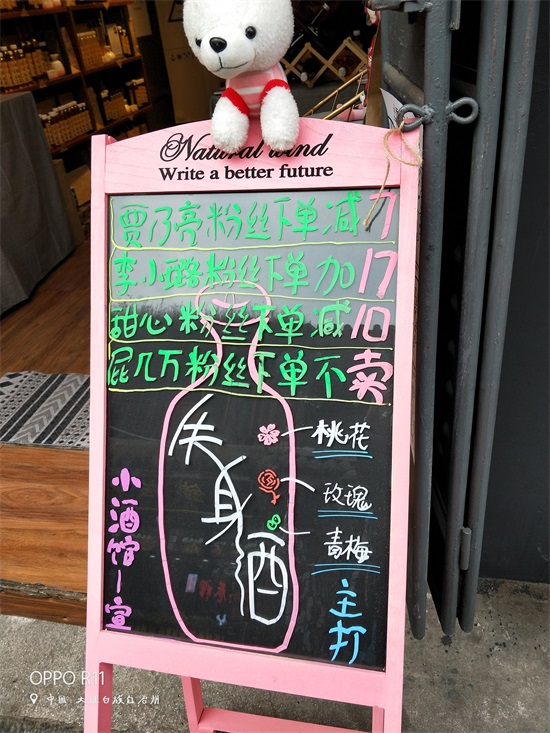 Natural wind
Write a better future
贾乃亮粉丝下单减7
李小璐粉丝下单加17
甜心粉丝下单减10
屁几万粉丝下单不卖
失身酒
桃花
玫瑰
青梅
主打
小酒馆一宣
OPPO R11
中国 大理白族自治州